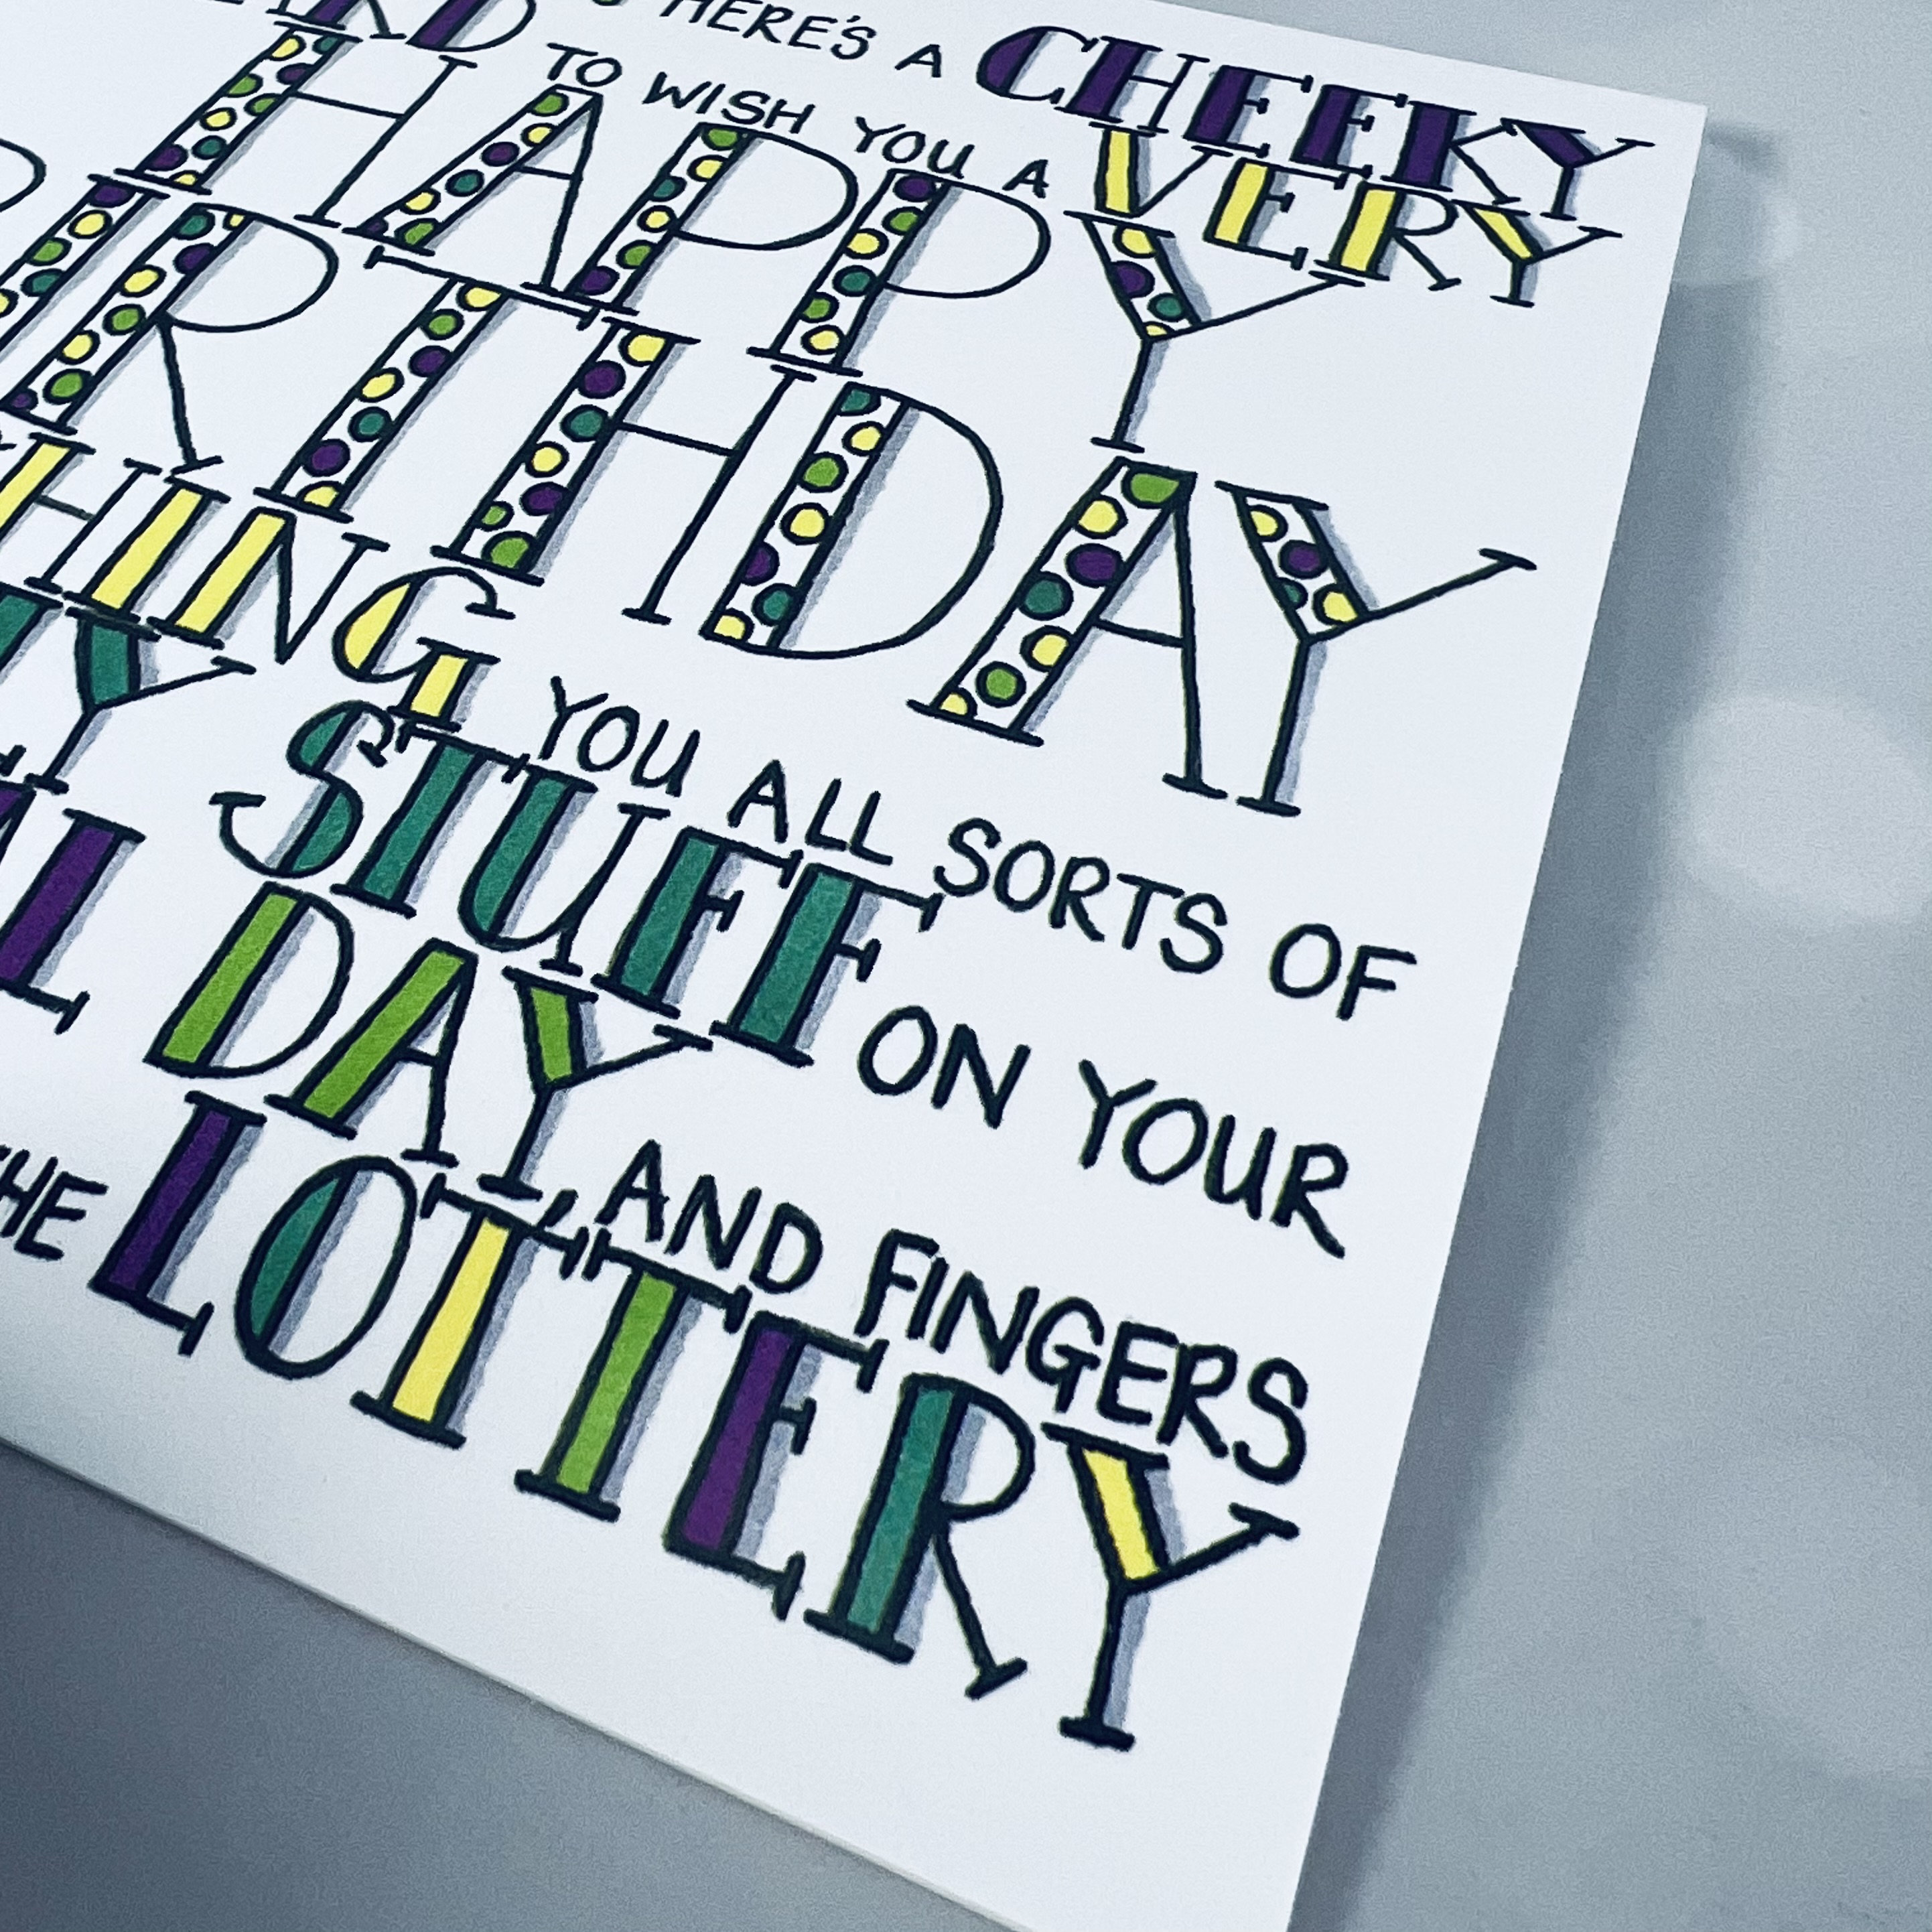 HERE'S A CHEEKY
TO WISH YOU A VERY
HAPPY
BIRTHDAY
YOU ALL SORTS OF
STUFF ON YOUR
DAY, AND FINGERS
THE LOTTERY